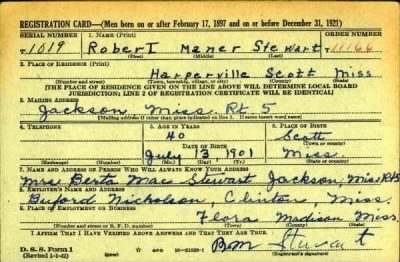 REGISTRATION CARD—(Men born on or after February 17, 1897 and on or before December 31, 1921)
SERIAL NUMBER 1. NAME (Print) ORDER NUMBER
T 1019 Robert Maner Stewart
(First) (Middle) (Last)
2. PLACE OF RESIDENCE (Print)
Harperville Scott Miss
(Number and street) (Town, township, village, or city) (County) (State)
[THE PLACE OF RESIDENCE GIVEN ON THE LINE ABOVE WILL DETERMINE LOCAL BOARD
JURISDICTION; LINE 2 OF REGISTRATION CERTIFICATE WILL BE IDENTICAL]
3. MAILING ADDRESS
Jackson Miss. Rt. 5
[Mailing address if other than place indicated on line 2. If same insert word same]
4. TELEPHONE 5. AGE IN YEARS 6. PLACE OF BIRTH
40 Scott
DATE OF BIRTH (Town or county)
July 13 1901 Miss
(Exchange) (Number) (Mo.) (Day) (Yr.) (State or country)
7. NAME AND ADDRESS OF PERSON WHO WILL ALWAYS KNOW YOUR ADDRESS
Mrs Berta Mae Stewart Jackson, Miss Rt 5
8. EMPLOYER'S NAME AND ADDRESS
Buford Nicholson, Clinton, Miss.
9. PLACE OF EMPLOYMENT OR BUSINESS
Flora Madison Miss.
(Number and street or R. F. D. number) (Town) (County) (State)
I AFFIRM THAT I HAVE VERIFIED ABOVE ANSWERS AND THAT THEY ARE TRUE.
D. S. S. Form 1
(Revised 1-1-42) GPO Stewart
(Registrant's signature)